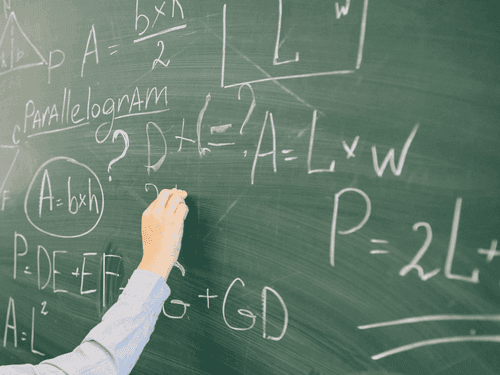 A = b×h / 2
L
W
P
Parallelogram
? D + ( - ?
A = L × W
A = b×h
P = 2L +
P = DE + EF
G + GD
A = L²